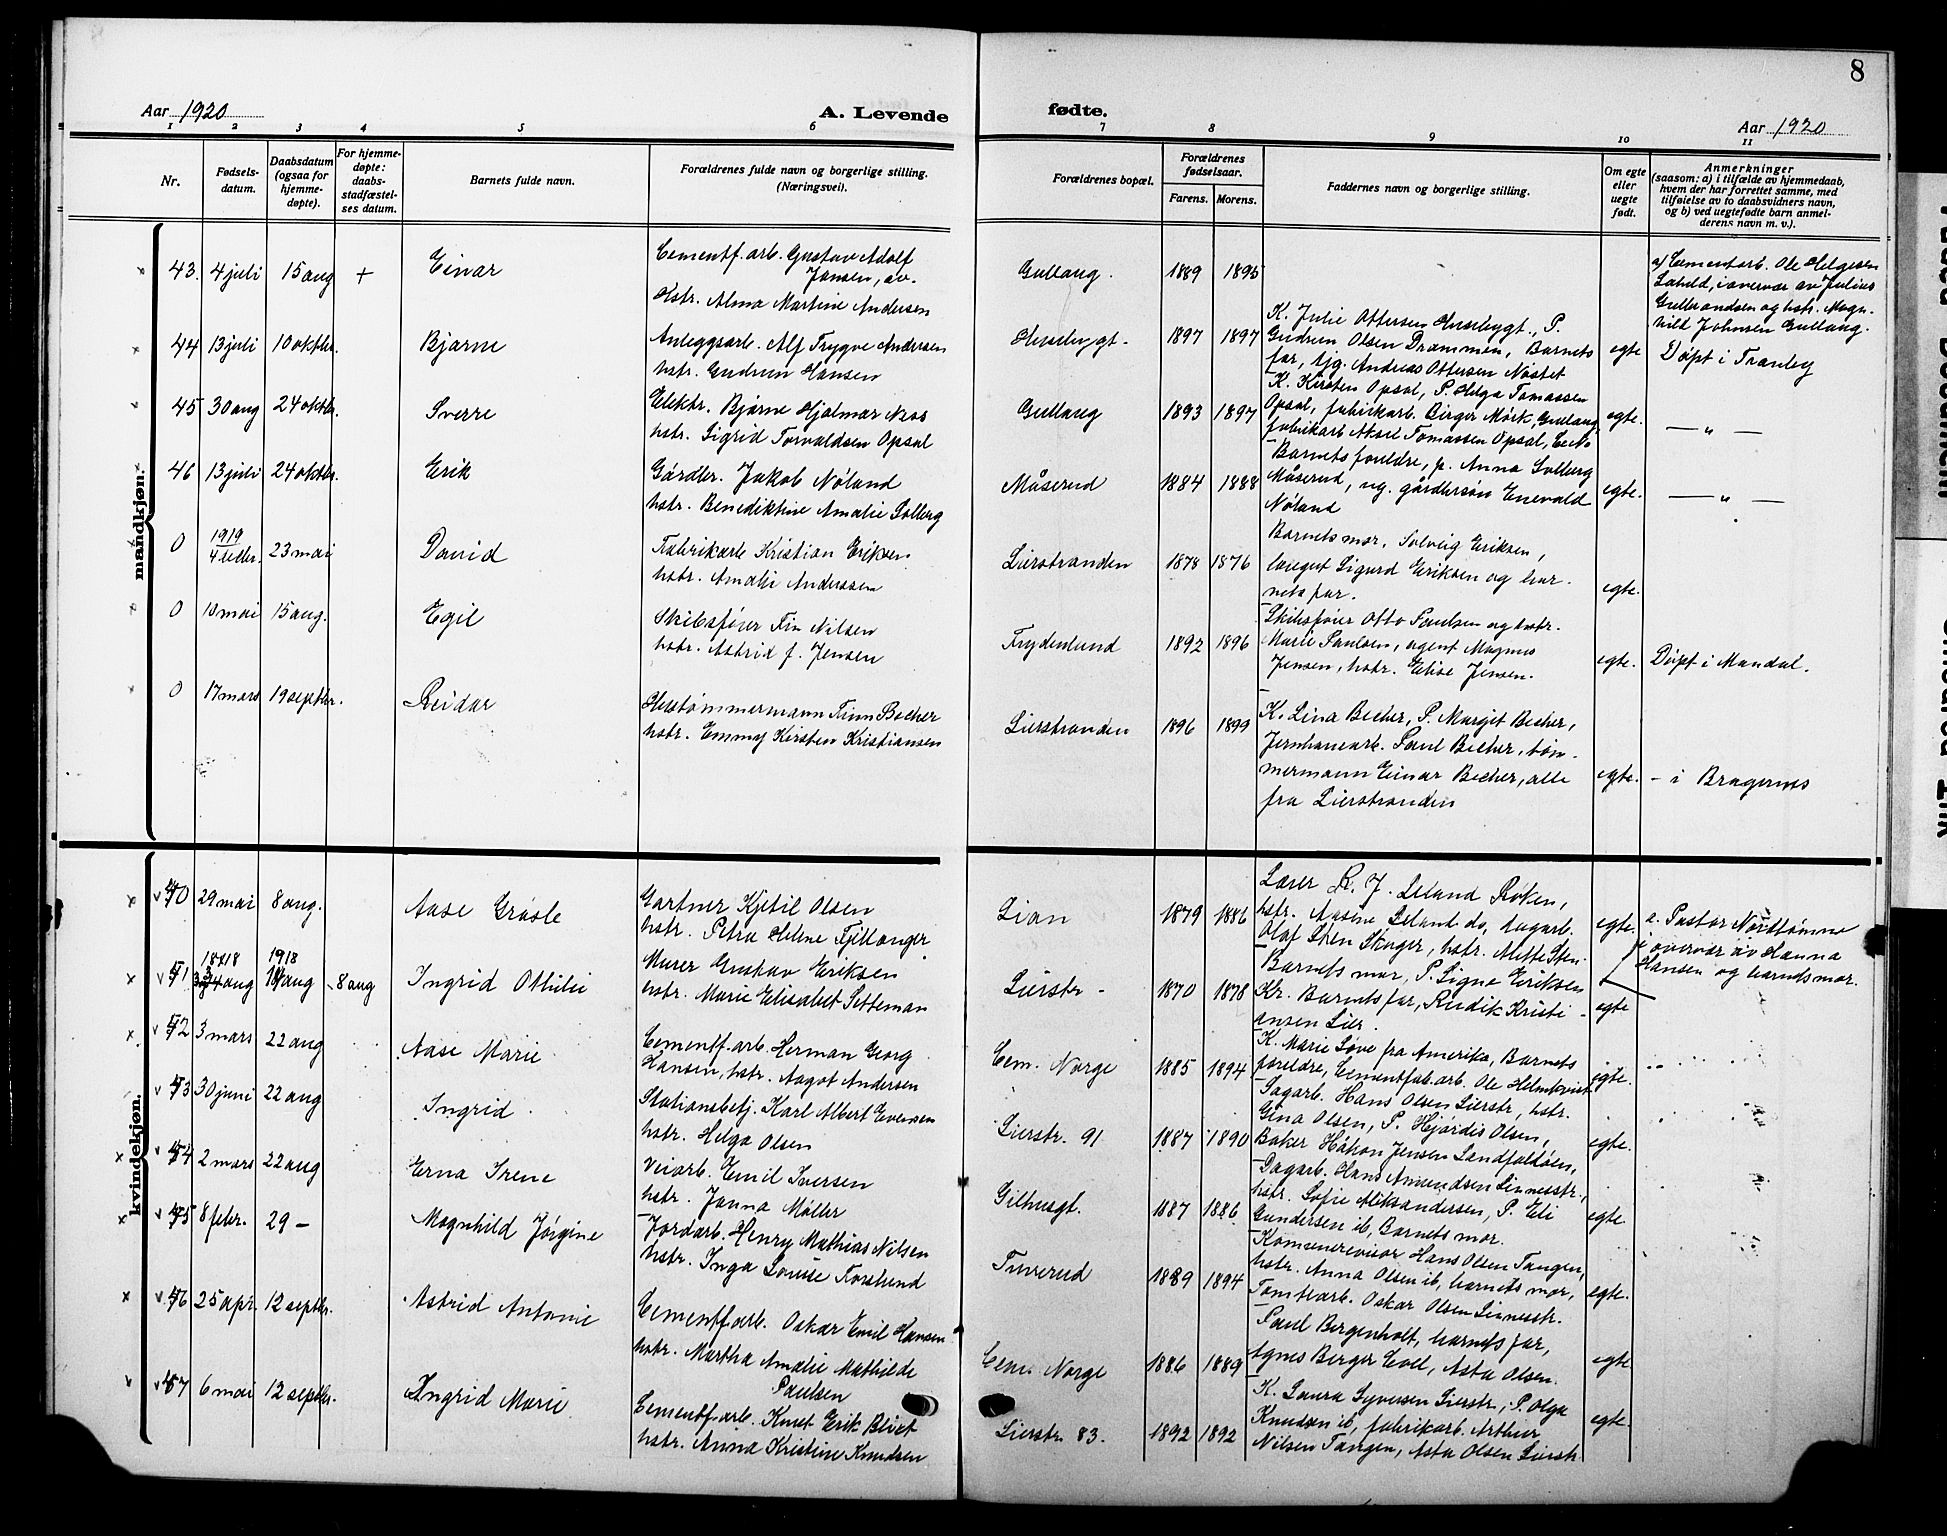 8
Aar 1920
A. Levende
fødte.
Aar 1920
1 2 3 4 5 6 7 8 9 10 11
Nr.
Fødsels-
datum.
Daabsdatum
(ogsaa for
hjemme-
døpte).
For hjemme-
døpte:
daabs-
stadfæstel-
ses datum.
Barnets fulde navn.
Forældrenes fulde navn og borgerlige stilling.
(Næringsvei).
Forældrenes bopæl.
Forældrenes
fødselsaar.
Farens. Morens.
Faddernes navn og borgerlige stilling.
Om egte
eller
uegte
født.
Anmerkninger
(saasom: a) i tilfælde av hjemmedaab,
hvem der har forrettet samme, med
tilføielse av to daabsvidners navn,
og b) ved uegtefødte barn anmel-
derens navn m. v.).
mandkjøn.
43. 4 juli 15 aug + Einar
Cementf. arb. Gustav Adolf
Jansen, av.
Hstr. Alma Martine Andersen
Gullaug. 1889 1895
a) Cementarb. Ole Helgesen
i overvær av Julius
Gulbrandsen og hstr. Magn-
hild Johnsen Gullaug.
44 13 juli 10 oktbr. Bjarne
Anleggsarb. Alf Trygve Andersen
hstr. Gudrun Hansen
Husebygt. 1897 1897
K. Julie Ottersen Husebygt., P.
Gudrun Olsen Drammen, Barnets
far, tjg. Andreas Ottersen Nøstet
egte Døpt i Tranby
45 30 aug 24 oktbr. Sverre
Elektr. Bjarne Hjalmar Næss
hstr. Sigrid Torvaldsen Opsal
Gullaug 1893 1897
K. Kirsten Opsal, P. Helga Tomassen
Opsal, fabrikarb. Birger Mørk, Gullaug
fabrikarb Aksel Tomassen Opsal,
egte. — " —
46 13 juli 24 oktbr. Erik
Gårdbr. Jakob Nøland
hstr. Benediktine Amalie Solberg
Måserud 1884 1888
Barnets foreldre, p. Anna Solberg
Måserud, ug. gårdbrsøn Enevald
Nøland
egte. — " —
0 1919
4 23 mai David
Fabrikarb Kristian Eriksen.
hstr. Amalie Anderssen
Lierstranden 1878 1876
Barnets mor, Solveig Eriksen,
Sigurd Eriksen og bar-
nets far.
egte.
0 18 mai 15 aug. Egil
Skibsfører Fin Nilsen
hstr. Astrid f. Jensen
Frydenlund 1892 1896
Skibsfører Otto Paulsen og hstr.
Marie Paulsen, agent Magnus
Jensen, hstr. Elise Jensen.
egte. Døpt i Mandal.
0 17 mars 19 septbr. Reidar
Hustømmermann Finn Becher
hstr. Emmy Kirsten Kristiansen
Lierstranden 1896 1899
K. Lina Becher, P. Margit Becher,
Jernbanearb. Paul Becher, tøm-
mermann Einar Becher, alle
fra Lierstranden
egte. - i Bragernes
kvindekjøn.
40 29 mai 8 aug. Aase Gråsle
Gartner Kjetil Olsen
hstr. Petra Helene Fjellanger
Lian 1879 1886
Lærer R. J. Leland Røken,
hstr. Aasine Leland do, dagarb.
Olaf Sten Skoger, hstr. Mette Sten
egte. a. Pastor Nordtømme
i overvær av Hanna
Hansen og barnets mor.
41 1918 aug 1918 aug 8 aug Ingrid Othilie
Murer Gustav Eriksen
hstr. Marie Elisabet Setteman
Lierstr - 1870 1878
Barnets mor, P. Signe Eriksen
Kr. Barnets far, Rudik Kristi-
ansen Lier.
egte
42 3 mars 22 aug Aase Marie
Cementf. arb. Herman Georg
Hansen, hstr. Aagot Andersen
Cem. Norge 1885 1894
K. Marie Løve fra Amerika, Barnets
foreldre, Cementfab.arb. Ole Helmkvist
egte.
43 30 juni 22 aug Ingrid
Stationsbetj. Karl Albert Evensen
hstr. Helga Olsen
Lierstr. 91 1887 1890
Sagarb. Hans Olsen Lierstr, hstr.
Gina Olsen, P. Hjørdis Olsen,
Baker Håkon Jensen Landfaldøen,
egte.
44 2 mars 22 aug Erna Irene
Veiarb. Emil Iversen
hstr. Janna Møller
Gilhusgt. 1887 1886
Dagarb. Hans Amundsen Linnesstr.,
hstr. Sofie Aleksandersen, P. Eli
Gundersen ib, Barnets mor.
egte.
45 8 febr. 29 - Magnhild Jørgine
Jordarb. Henry Mathias Nilsen
hstr. Inga Louise Forslund
Tuverud 1889 1894
Komunerevisor Hans Olsen Tangen,
hstr. Anna Olsen ib, barnets mor,
Tomtearb. Oskar Olsen Linnesstr.
egte.
46 25 apr. 12 septbr. Astrid Antonie
Cementf.arb. Oskar Emil Hansen
hstr. Martha Amalie Mathilde
Paulsen
Cem. Norge 1886 1889
Paul Bergenholt, barnets far,
Agnes Berger Evel, Asta Olsen.
egte
47 6 mai 12 septbr. Ingrid Marie
Cementf. arb. Knut Erik Blixt
hstr. Anna Kristine Knudsen
Lierstr. 83. 1892 1892
K. Laura Syversen Lierstr, P. Olga
Knudsen ib, fabrikarb. Arthur
Nilsen Tangen, Asta Olsen Lierstr
egte.